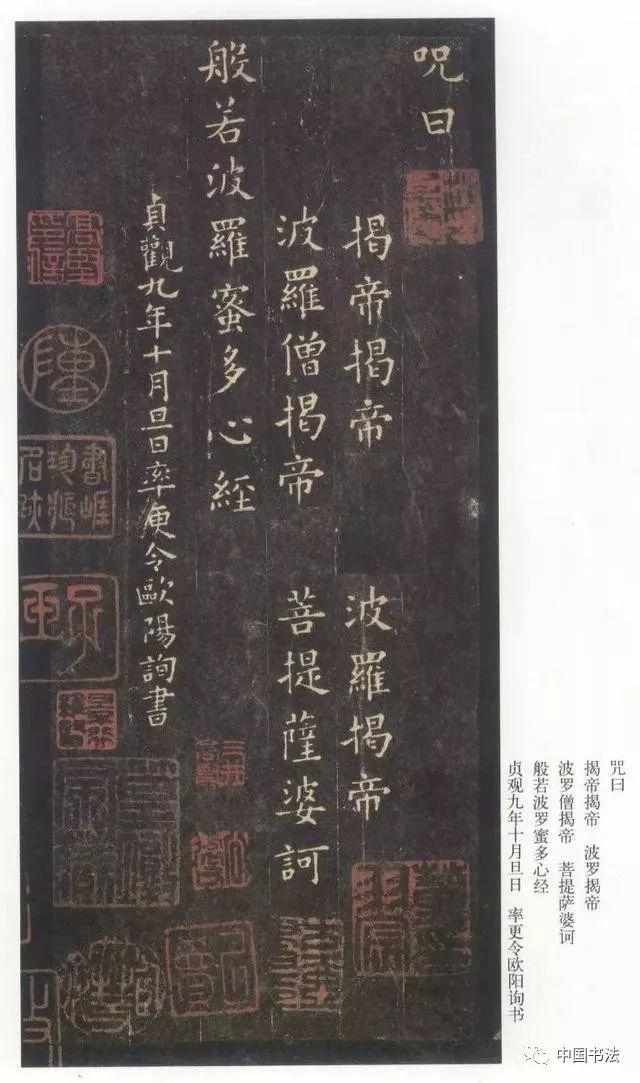 咒曰
揭帝揭帝 波羅揭帝
波羅僧揭帝 菩提薩婆訶
般若波羅蜜多心經
貞觀九年十月旦日率更令歐陽詢書
咒曰
揭帝揭帝 波罗揭帝
波罗僧揭帝 菩提萨婆诃
般若波罗蜜多心经
贞观九年十月旦日 率更令欧阳询书
中国书法